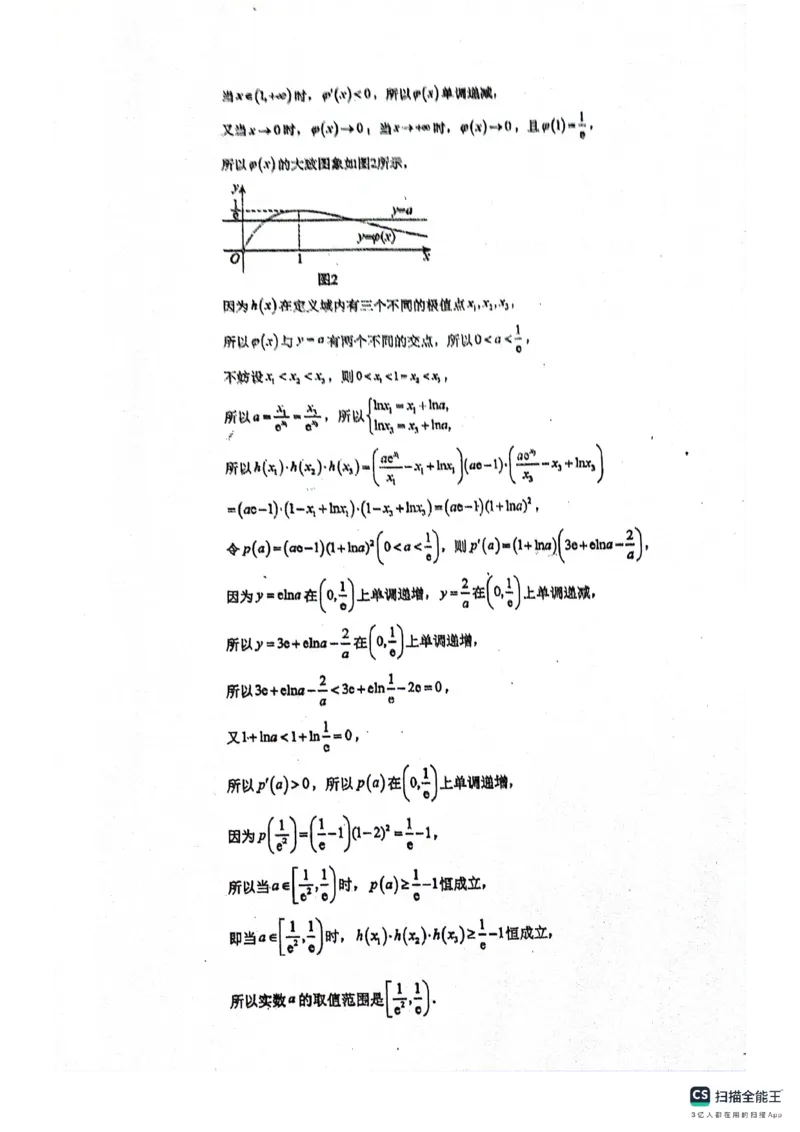 当x∈(1,+∞)时，φ′(x)<0，所以φ(x)单调递减，
又当x→0时，φ(x)→0；当x→+∞时，φ(x)→0，且φ(1)=1/e，
所以φ(x)的大致图象如图2所示，
y
1/e
y=a
y=φ(x)
O 1 x
图2
因为h(x)在定义域内有三个不同的极值点x₁,x₂,x₃，
所以φ(x)与y=a有两个不同的交点，所以0<a<1/e，
不妨设x₁<x₂<x₃，则0<x₁<1=x₂<x₃，
所以a=x₁/e^x₁=x₃/e^x₃，所以{lnx₁=x₁+lna, lnx₃=x₃+lna,
所以h(x₁)·h(x₂)·h(x₃)=(ae^x₁/x₁-x₁+lnx₁)(ae-1)·(ae^x₃/x₃-x₃+lnx₃)
=(ae-1)·(1-x₁+lnx₁)·(1-x₃+lnx₃)=(ae-1)(1+lna)²，
令p(a)=(ae-1)(1+lna)²(0<a<1/e)，则p′(a)=(1+lna)(3e+elna-2/a)，
因为y=elna在(0,1/e)上单调递增，y=2/a在(0,1/e)上单调递减，
所以y=3e+elna-2/a在(0,1/e)上单调递增，
所以3e+elna-2/a<3e+eln1/e-2e=0，
又1+lna<1+ln1/e=0，
所以p′(a)>0，所以p(a)在(0,1/e)上单调递增，
因为p(1/e²)=(1/e-1)(1-2)²=1/e-1，
所以当a∈[1/e²,1/e)时，p(a)≥1/e-1恒成立，
即当a∈[1/e²,1/e)时，h(x₁)·h(x₂)·h(x₃)≥1/e-1恒成立，
所以实数a的取值范围是[1/e²,1/e).
CS 扫描全能王
3亿人都在用的扫描App